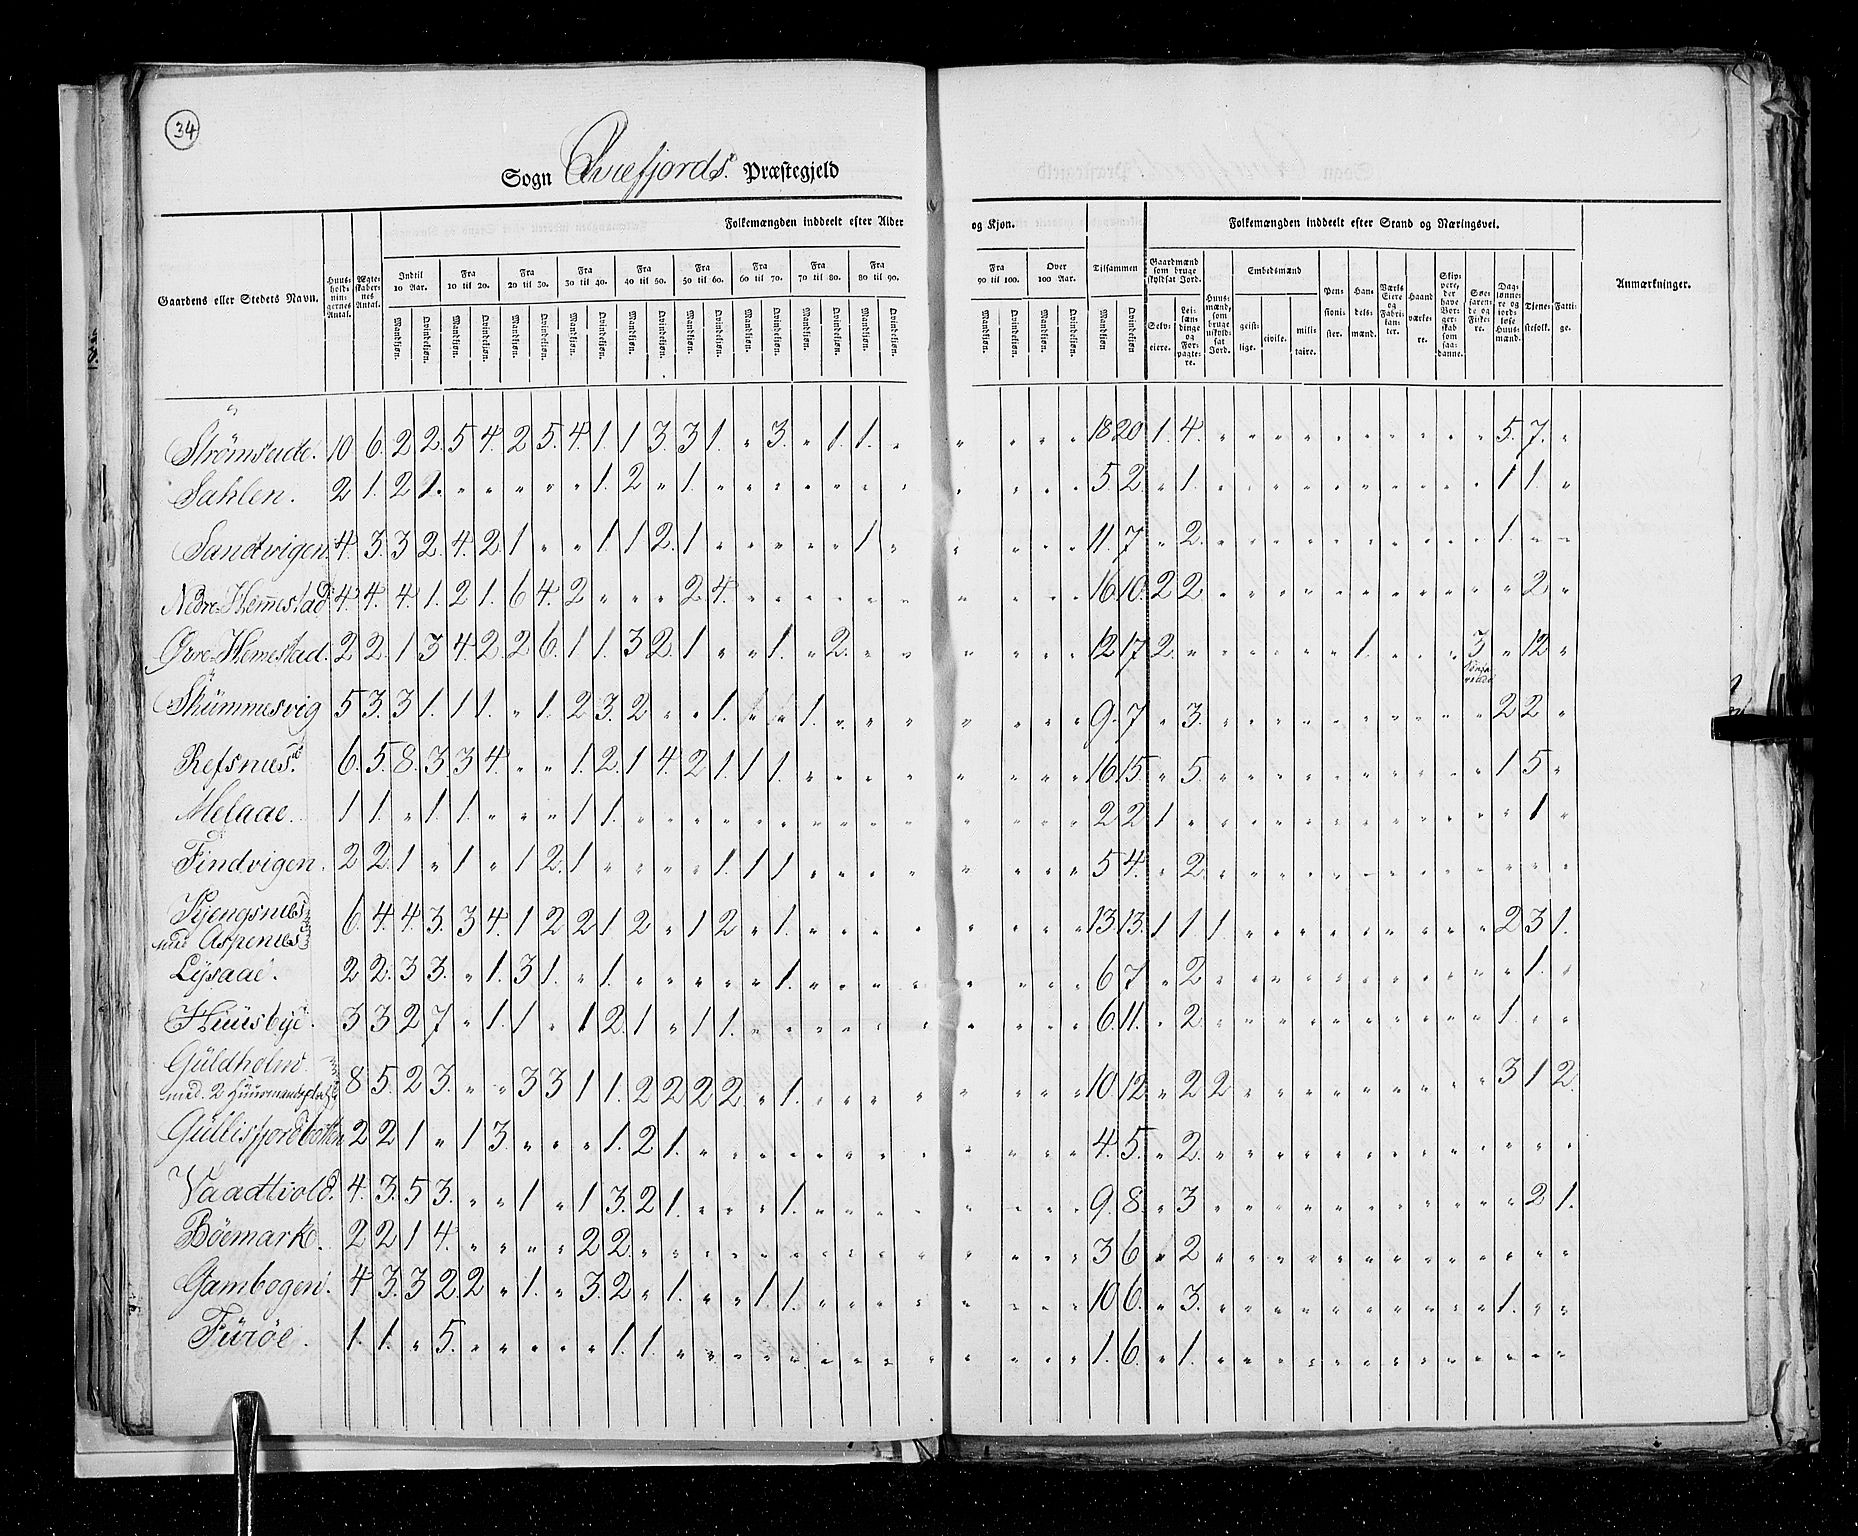 34
Sogn Qvæfjords Præstegjeld
Folkemængden inddeelt efter Alder og Kjøn. Folkemængden inddeelt efter Stand og Næringsvei.
Gaardens eller Stedets Navn. Huusholdningernes Antal. Ægteskabernes Antal. Indtil 10 Aar. Fra 10 til 20. Fra 20 til 30. Fra 30 til 40. Fra 40 til 50. Fra 50 til 60. Fra 60 til 70. Fra 70 til 80. Fra 80 til 90. Fra 90 til 100. Over 100 Aar. Tilsammen Gaardmænd som bruge skyldsat Jord. Huusmænd, som bruge uskyldsat Jord. Embedsmænd Pensionister. Handelsmænd. Værks Eiere og Fabrikanter. Haandværkere. Skippere, der have Borgerskab som saadanne. Søefarende og Fiskere. Daglønnere og jordløse Huusmænd. Tjenestefolk. Fattige. Anmærkninger.
Mandkjøn. Qvindekjøn. Mandkjøn. Qvindekjøn. Mandkjøn. Qvindekjøn. Mandkjøn. Qvindekjøn. Mandkjøn. Qvindekjøn. Mandkjøn. Qvindekjøn. Mandkjøn. Qvindekjøn. Mandkjøn. Qvindekjøn. Mandkjøn. Qvindekjøn. Mandkjøn. Qvindekjøn. Mandkjøn. Qvindekjøn. Mandkjøn Qvindekjøn Selveiere. Leilændinge og Forpagtere. geistlige. civile. militaire.
Strømseide. 10 6. 2 2. 5 4. 2 5. 4. 1. 1 3. 3 1. " 3. " 1. 1. " " " " " 18 20 1. 4. " " " " " " " " " " 5. 7. "
Sahlen. 2 1. 2 1. " " " " " " 1. 2 " 1. " " " " " " " " " 5 2 " 1. " " " " " " " " " " 1 1. "
Sandvigen. 4. 3. 3 2. 4. 2. 1 " " 1. 1 2. 1 " " " " " 1 " " " " " 11. 7. " 2. " " " " " " " " " " 1. " "
Nedre Hemmestad. 4. 4. 4. 1. 2 1. 6 4. 2 " " " 2 4. " " " " " " " " " " 16 10. 2 2 " " " " " " " " " " " 2. "
Øvre Hemestad. 2 2. 1 3 4. 2. 2 6. 1 1. 3 2. 1 " " 1. " 2. " " " " " " 12 17 2. " " " " " " 1. " " " 3 " 12 "
Skümmesvig 5 3. 3 1. 1 1. " 1. 2 3. 2 " " 1. " " 1. " " " " " " " 9. 7. " 3. " " " " " " " " " " 2 2. "
Refsnæs. 6. 5. 8. 3. 3 4. " " 1. 2. 1 4. 2 1. 1 1. " " " " " " " " 16 15. " 5. " " " " " " " " " " 1 5. "
Melaae. 1 1. " 1. 1. " " " 1 1. " " " " " " " " " " " " " " 2 2. 1 " " " " " " " " " " " " 1. "
Findvigen. 2 2. 1 " 1. " 1 2. 1 " " " " 1. 1 1. " " " " " " " " 5 4. " 2. " " " " " " " " " " " " "
Kjengsnæs
med Aspenæs 6. 4. 4. 3. 3 4. 1 2 2 1. 2 " 1 2. " 1. " " " " " " " " 13 13. 1 1. 1 " " " " " " " " " 2 3 1.
Lysaae. 2 2. 3 3. " 1. 3 1. " 1. " " " " " 1. " " " " " " " " 6 7. " 2. " " " " " " " " " " " 1. "
Huusbye. 3 3. 2 7. " 1. 1 " 1 2. 1 " 1 1. " " " " " " " " " " 6 11. " 2. " " " " " " " " " " 1. " "
Güldholm
med 2 Huusmandspladse 8 5. 2 3. " " 3 3 1 1. 2 2 2 2. " 1. " " " " " " " " 10 12. " 2 2 " " " " " " " " " 3 1 2.
Güllisfjordbotten 2 2. 1 " 1 3. " " " 1. 2 1. " " " " " " " " " " " " 4. 5. " 2. " " " " " " " " " " " " "
Vaadtvold. 4. 3. 5 3. " " 1 " 1 3. 2 1. " " " 1. " " " " " " " " 9. 8. " 3. " " " " " " " " " " " 2 1.
Böemark. 2 2. 1 4. " " " " 2 2. " " " " " " " " " " " " " " 3 6. " 2. " " " " " " " " " " " " "
Gambogen. 4. 3. 3 2. 2 " 1. " 3. 2 " 1. " " 1 1. " " " " " " " " 10 6. " 3. " " " " " " " " " " 1. " "
Füröe. 1. 1. " 5. " " " " " 1. 1. " " " " " " " " " " " " " 1. 6. " 1. " " " " " " " " " " " " "